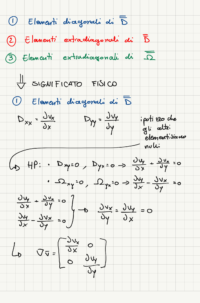 ① Elementi diagonali di D̿
② Elementi extradiagonali di D̿
③ Elementi extradiagonali di Ω̿
⇓ SIGNIFICATO FISICO
① Elementi diagonali di D̿
Dxx = ∂ux/∂x Dyy = ∂uy/∂y ipotizzo che gli altri elementi siano nulli
↳ HP: • Dxy=0, Dyx=0 → ∂ux/∂y + ∂uy/∂x = 0
• Ωxy=0, Ωyx=0 → ∂ux/∂y - ∂uy/∂x = 0
∂ux/∂y + ∂uy/∂x = 0
∂ux/∂y - ∂uy/∂x = 0 } → ∂ux/∂y = ∂uy/∂x = 0
↳ ∇u̅ = [∂ux/∂x 0
0 ∂uy/∂y]